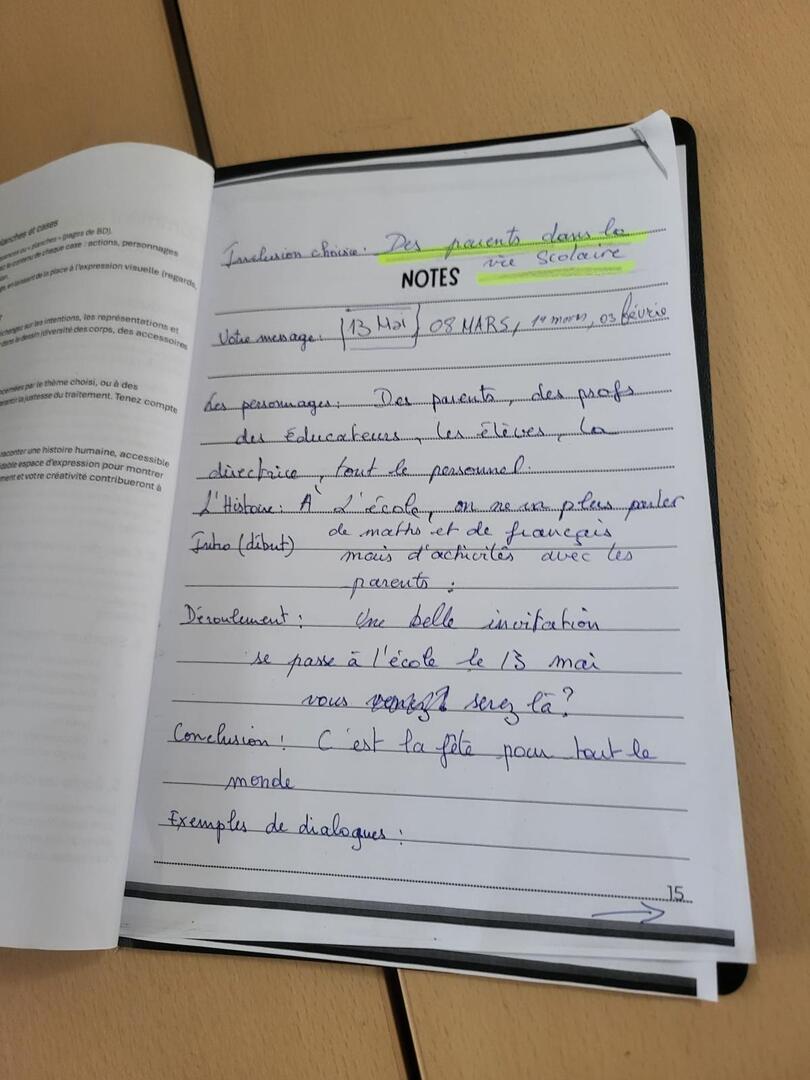 planches et cases
ences ou « planches » (pages de BD).
le contenu de chaque case : actions, personnages
en laissant de la place à l'expression visuelle (regards,
échangez sur les intentions, les représentations et
dans le dessin (diversité des corps, des accessoires
concernées par le thème choisi, ou à des
la justesse du traitement. Tenez compte
raconter une histoire humaine, accessible
espace d'expression pour montrer
ment et votre créativité contribueront à
Inclusion choisie : Des parents dans la
vie Scolaire
NOTES
Votre message : 13 Mai 08 MARS, 1er mars, 03 février
Les personnages : Des parents, des profs
des Éducateurs, les élèves, la
directrice, tout le personnel.
L'Histoire : À L'école, on ne va plus parler
Intro (début) de maths et de français
mais d'activités avec les
parents :
Déroulement : Une belle invitation
se passe à l'école le 13 mai
vous serez là ?
Conclusion ! C'est la fête pour tout le
monde
Exemples de dialogues :
15